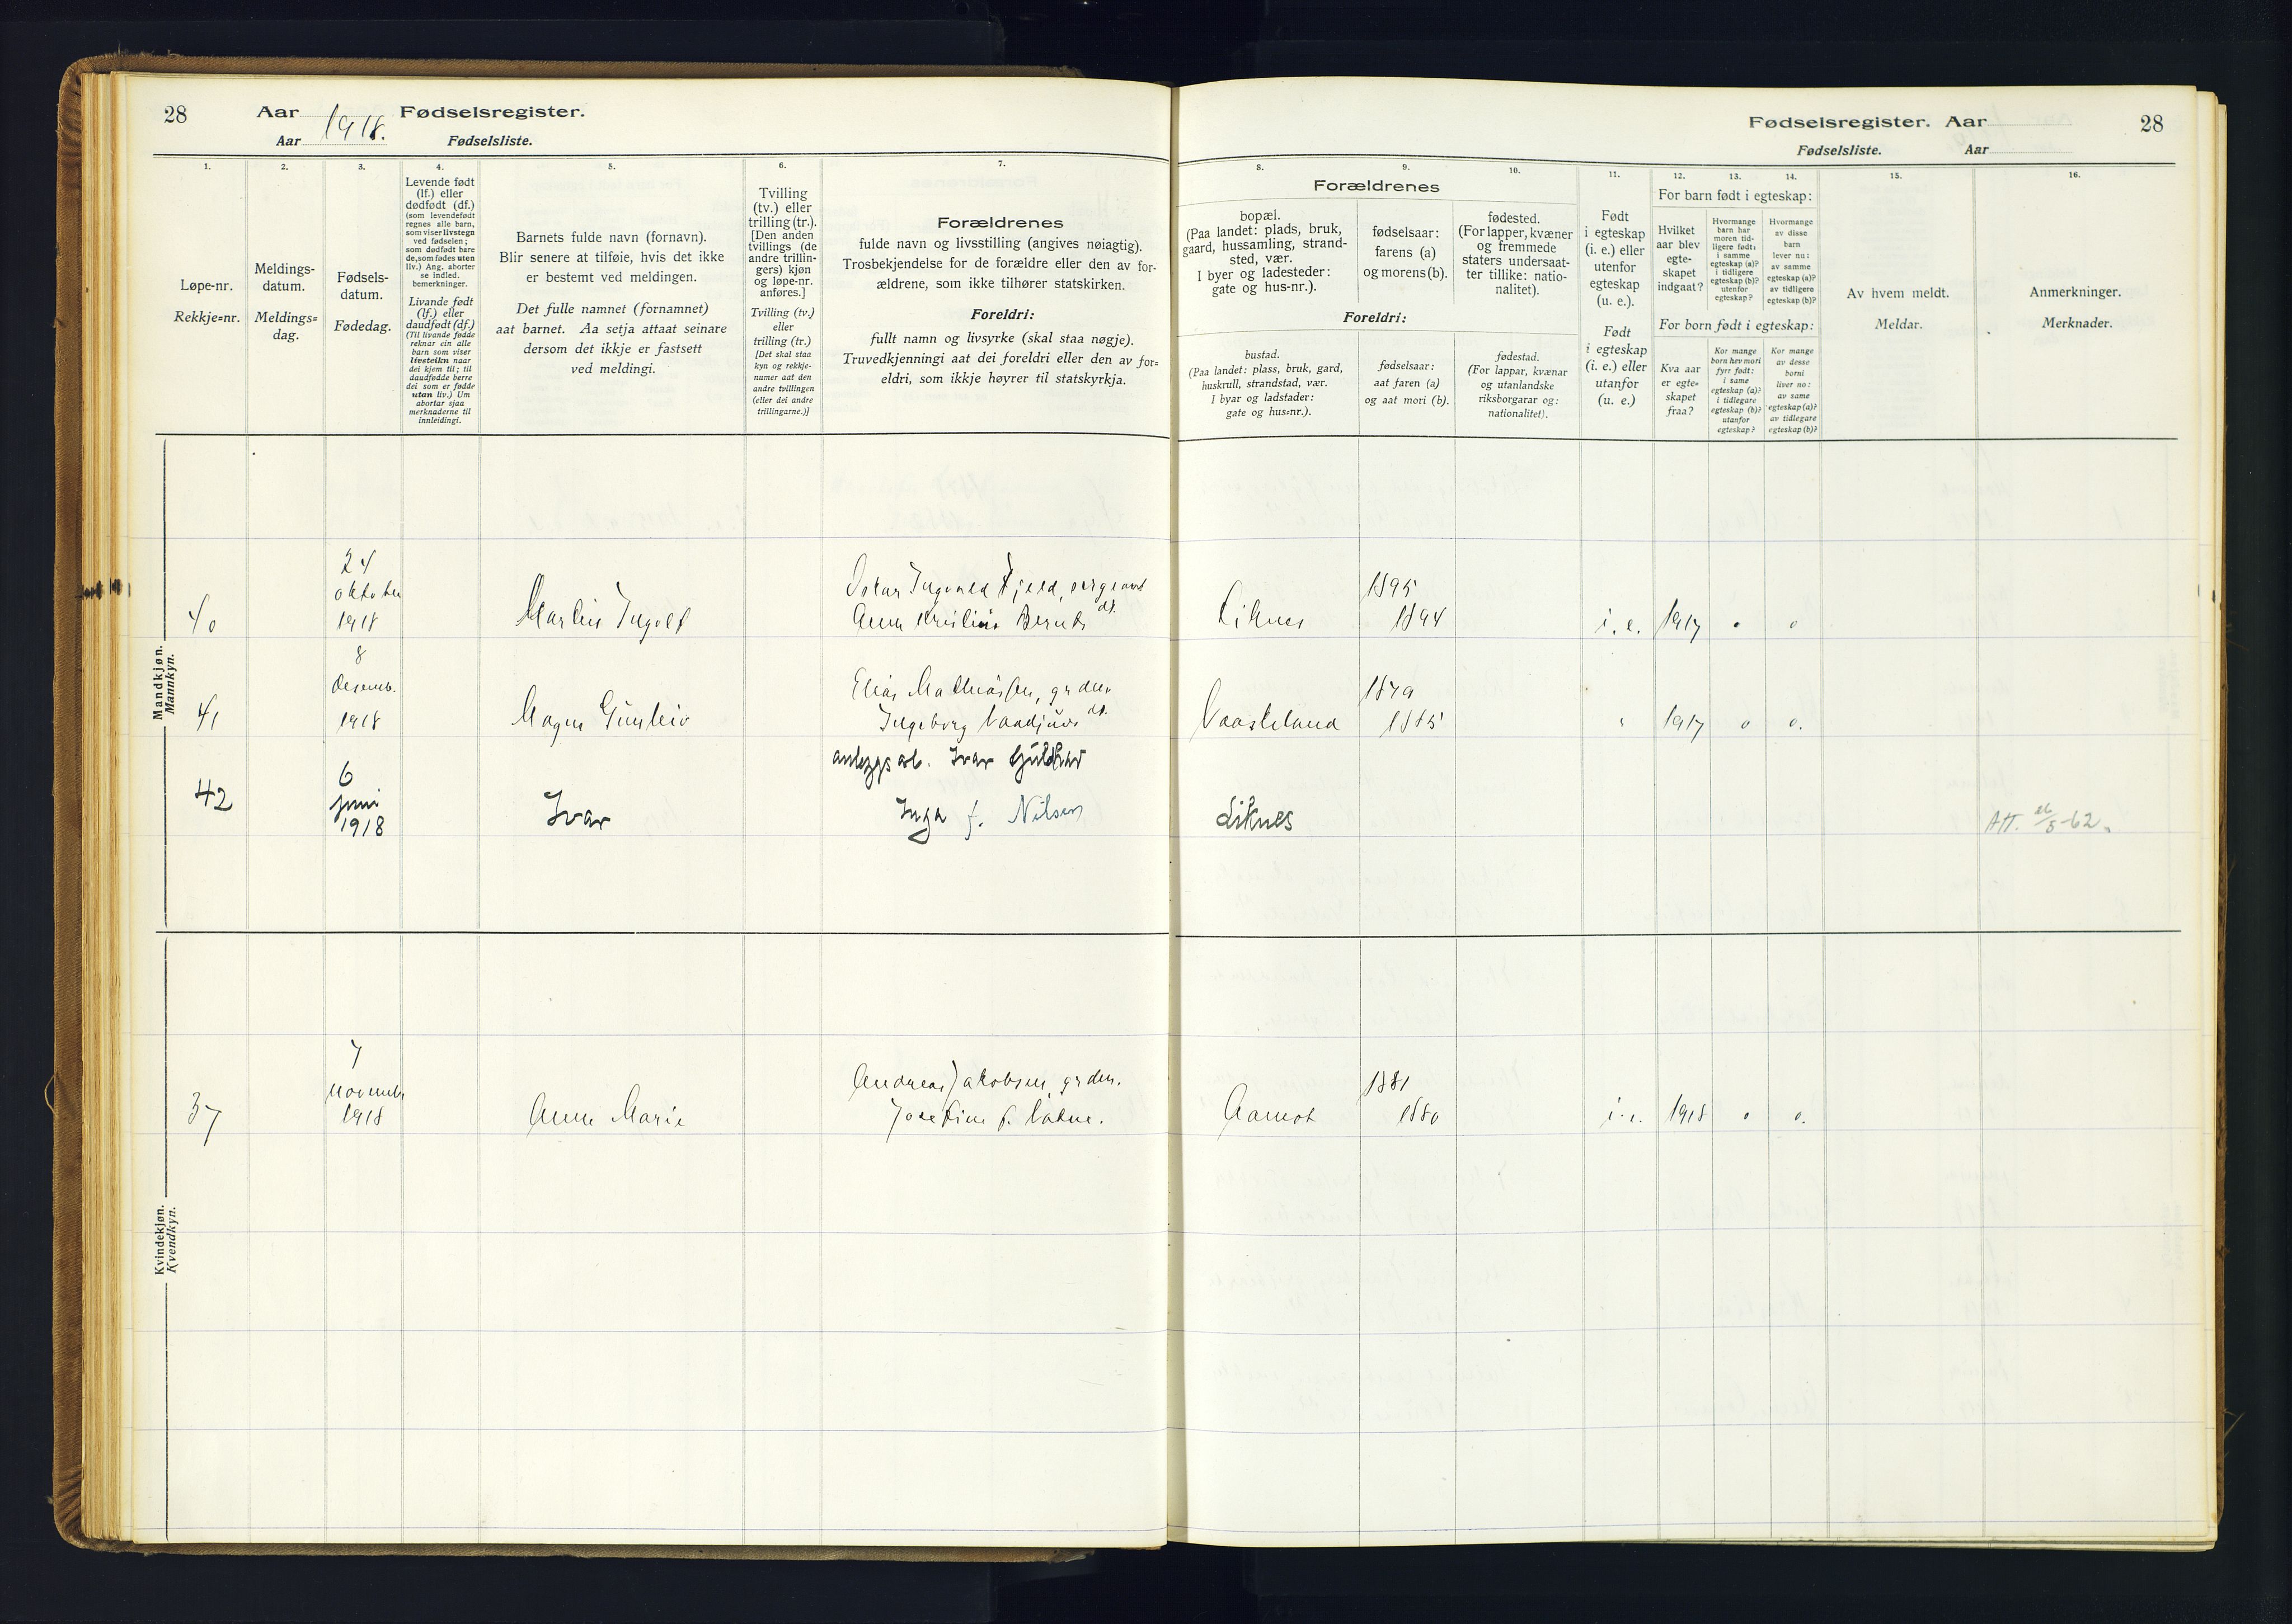 28
Aar 1918. Fødselsregister.
Aar Fødselsliste.
1.
2.
3.
4.
5.
6.
7.
Løpe-nr.
Rekkje=nr.
Meldings-
datum.
Meldings=
dag.
Fødsels-
datum.
Fødedag.
Levende født
(lf.) eller
dødfødt (df.)
(som levendefødt
regnes alle barn,
som viser livstegn
ved fødselen;
som dødfødt bare
de, som fødes uten
liv.) Ang. aborter
se indled.
bemerkninger.
Livande født
(lf.) eller
daudfødt (df.)
(Til livande fødde
reknar ein alle
barn som viser
livsteikn naar
dei kjem til; til
daudfødde berre
dei som er fødde
utan liv.) Um
abortar sjaa
merknaderne til
innleidingi.
Barnets fulde navn (fornavn).
Blir senere at tilføie, hvis det ikke
er bestemt ved meldingen.
Det fulle namnet (fornamnet)
aat barnet. Aa setja attaat seinare
dersom det ikkje er fastsett
ved meldingi.
Tvilling
(tv.) eller
trilling (tr.).
[Den anden
tvillings (de
andre trillin-
gers) kjøn
og løpe-nr.
anføres.]
Tvilling (tv.)
eller
trilling (tr.)
[Det skal staa
kyn og rekkje-
numer aat den
andre tvillingen
(eller dei andre
trillingarne.)]
Forældrenes
fulde navn og livsstilling (angives nøiagtig).
Trosbekjendelse for de forældre eller den av for-
ældrene, som ikke tilhører statskirken.
Foreldri:
fullt namn og livsyrke (skal staa nøgje).
Truvedkjenningi aat dei foreldri eller den av for=
eldri, som ikkje høyrer til statskyrkja.
Mandkjøn.
Mannkyn.
40
24
oktober
1918
Martin Ingolf
Oskar Ingvald Fjeld, sergeant
Anna Kristine
41
8
desemb.
1918
Magne Gunleiv
Elias Mathiassen, grdm.
Ingeborg
42
6
juni
1918
Ivar
anleggsarb. Ivar
Inga f. Nilsen
Kvindekjøn.
Kvendkyn.
37
7
novemb.
1918
Anna Marie
Andreas Jakobsen, grdm.
Josefine f. Vatne.
Fødselsregister. Aar
28
Fødselsliste. Aar
8.
9.
10.
11.
12.
13.
14.
15.
16.
Forældrenes
bopæl.
(Paa landet: plads, bruk,
gaard, hussamling, strand-
sted, vær.
I byer og ladesteder:
gate og hus-nr.).
fødselsaar:
farens (a)
og morens (b).
fødested.
(For lapper, kvæner
og fremmede
staters undersaat-
ter tillike: natio-
nalitet).
Foreldri:
bustad.
(Paa landet: plass, bruk, gard,
huskrull, strandstad, vær.
I byar og ladstader:
gate og hus=nr.).
fødselsaar:
aat faren (a)
og aat mori (b).
fødestad.
(For lappar, kvænar
og utanlandske
riksborgarar og:
nationalitet).
Født
i egteskap
(i. e.) eller
utenfor
egteskap
(u. e.).
Født
i egteskap
(i. e.) eller
utanfor
(u. e.)
For barn født i egteskap:
Hvilket
aar blev
egte-
skapet
indgaat?
Hvormange
barn har
moren tid-
ligere født:
i samme
egteskap (a)?
i tidligere
egteskap (b)?
utenfor
egteskap?
Hvormange
av disse
barn
lever nu:
av samme
egteskap (a)?
av tidligere
egteskap (b)?
For born født i egteskap:
Kva aar
er egte=
skapet
fraa?
Kor mange
born hev mori
fyrr født:
i same
egteskap (a)?
i tidlegare
egteskap (b)?
utanfor
egteskap?
Kor mange
av desse
borni
liver no:
av same
egteskap (a)?
av tidlegare
egteskap (b)?
Av hvem meldt.
Meldar.
Anmerkninger.
Merknader.
Liknes
1895
1894
i. e. 1917 0 0
1879
1885
" 1917 0 0.
Liknes
Att. 26/5-62.
Aamot
1881
1880
i. e. 1918 0 0.